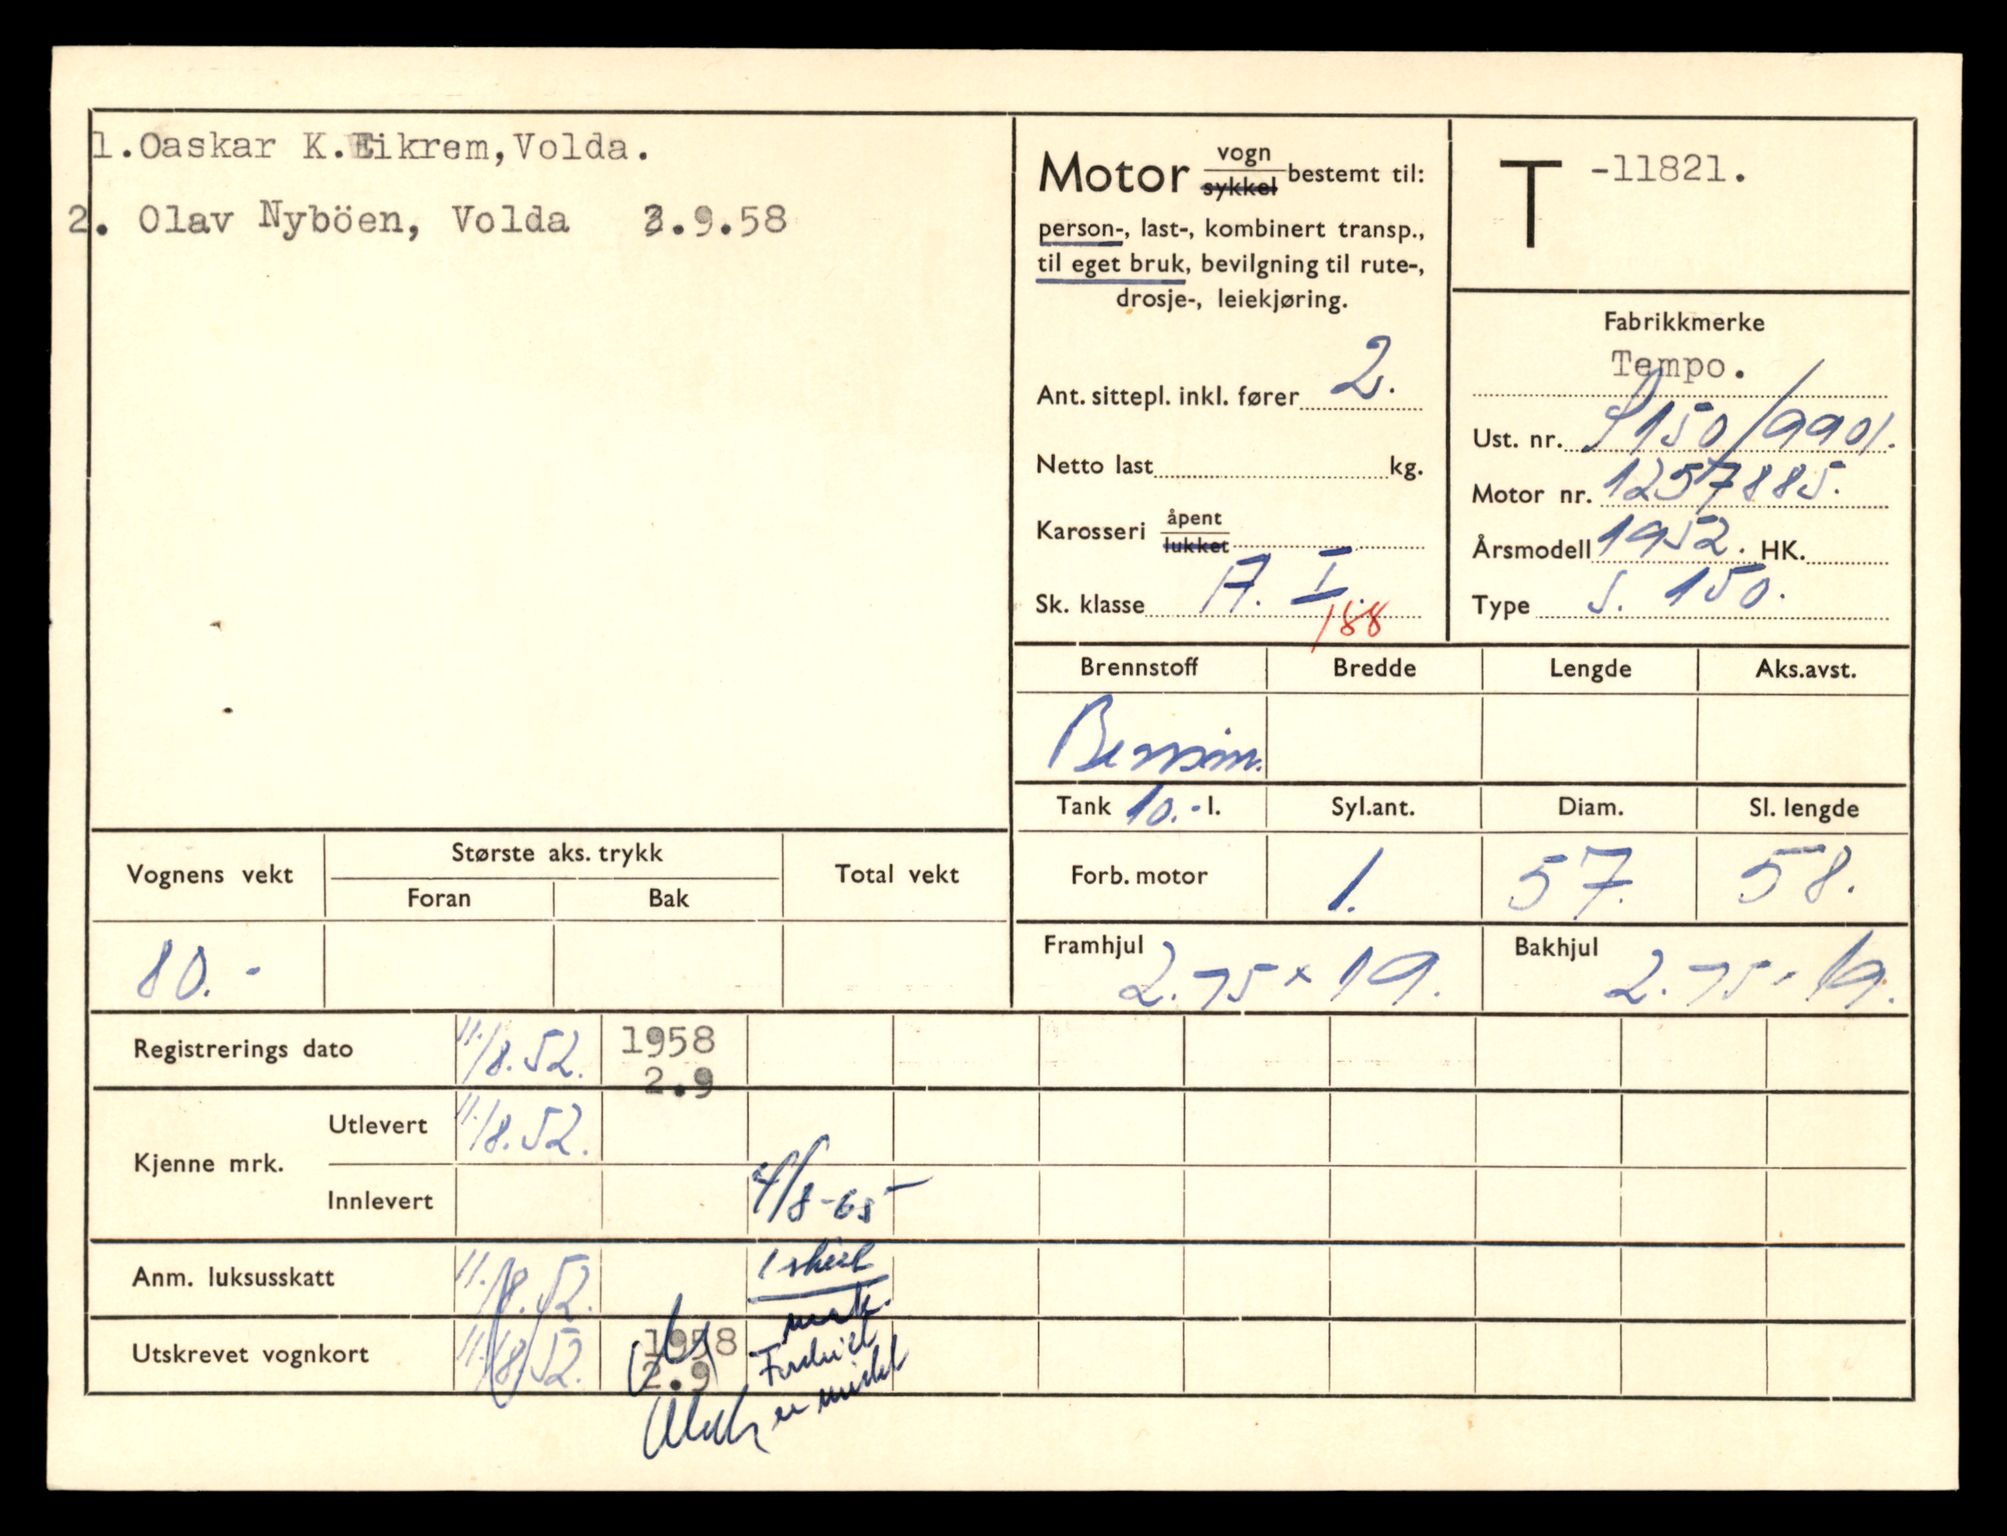 1.Oaskar K.Eikrem,Volda.
2. Olav Nyböen, Volda 3.9.58
Motor vogn sykkel bestemt til:
person-, last-, kombinert transp.,
til eget bruk, bevilgning til rute-,
drosje-, leiekjøring.
Ant. sittepl. inkl. fører 2.
Netto last kg.
Karosseri åpent lukket
Sk. klasse A. I.
188
T -11821.
Fabrikkmerke
Tempo.
Ust. nr. S150/9901.
Motor nr. 1257885.
Årsmodell 1952. HK.
Type S. 150.
Brennstoff Bredde Lengde Aks.avst.
Bensin.
Tank 10.- l. Syl.ant. Diam. Sl. lengde
Forb. motor 1. 57. 58.
Framhjul 2.75 x 19. Bakhjul 2.75 - 19.
Vognens vekt Største aks. trykk Total vekt
Foran Bak
80.-
Registrerings dato 11./8.52. 1958 2.9
Kjenne mrk. Utlevert 11./8.52.
Innlevert 4/8-65
1 skilt
Anm. luksusskatt 11./8.52.
Utskrevet vognkort 11./8.52. 1958 2.9